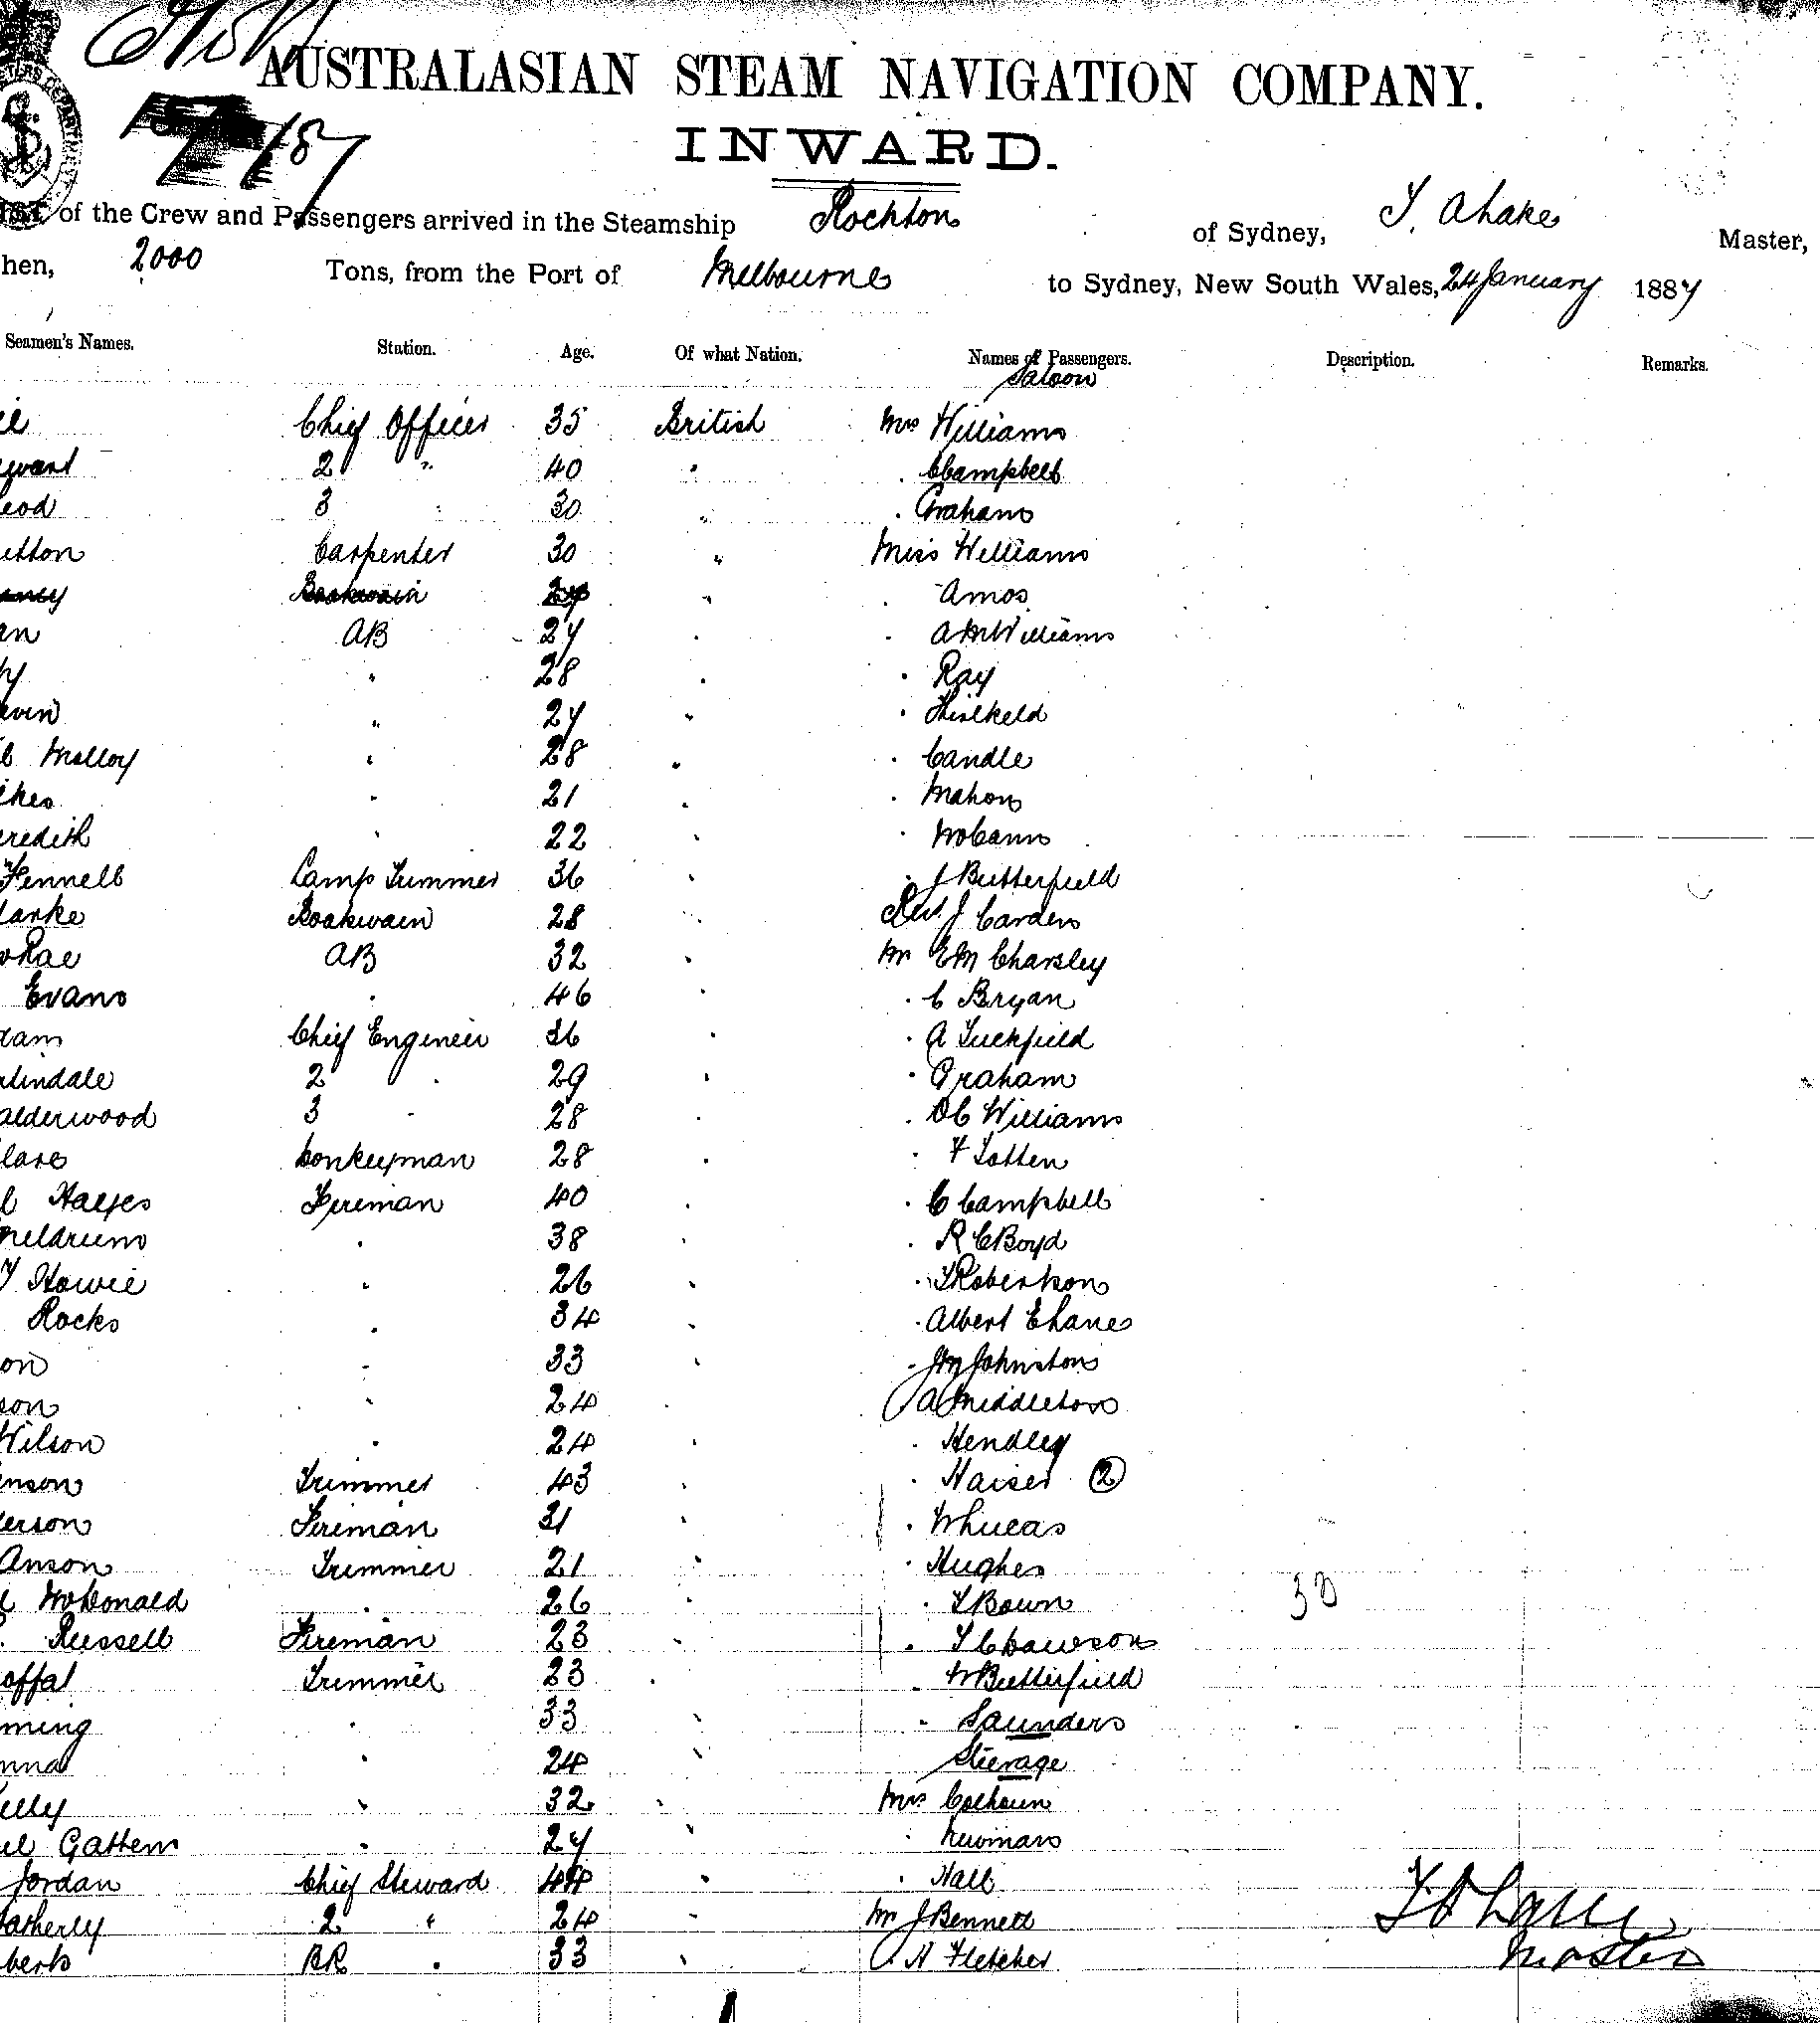 AUSTRALASIAN STEAM NAVIGATION COMPANY.
INWARD.
of the Crew and Passengers arrived in the Steamship Rockton of Sydney, Master,
hen, 2000 Tons, from the Port of Melbourne to Sydney, New South Wales, 24 January 1887
Seamen's Names. Station. Age. Of what Nation. Names of Passengers. Description. Remarks.
Saloon
Chief Officer 35 British Mrs Williams
2 " 40 " " Campbell
eod 3 : 30 " " Graham
utton Carpenter 30 " Miss Williams
Boatswain " " Amos
an AB 27 " " A M Williams
y " 28 " " Ray
" 27 " " Thirlkeld
Malloy " 28 " " Candle
ikes " 21 " " Mahon
eredith " 22 " " McCann
Fennell Lamp Trimmer 36 " " J Butterfield
larke Boatswain 28 " Rev. J Carden
cRae AB 32 " Mr E M Charsley
Evans " 46 " " C Bryan
dam Chief Engineer 36 " " A Tuckfield
lindale 2 " 29 " " Graham
alderwood 3 " 28 " " D C Williams
lare Donkeyman 28 " " F Totten
Hayes Fireman 40 " " C Campbell
meldrum " 38 " " R C Boyd
Howie " 26 " " T Robertson
Rocks " 34 " " Albert E Lane
on " 33 " " J M Johnston
son " 24 " A Middleton
Wilson " 24 " " Hendley
nson Trimmer 43 " " Kaiser 2
erson Fireman 31 " " W Lucas
anson Trimmer 21 " " Hughes 30
McDonald " 26 " " T Bown
Russell Fireman 23 " " T C Dawson
offat Trimmer 23 " " W Butterfield
ming " 33 " " Saunders
nna " 24 " Steerage
elly " 32 " Mrs Calhoun
el Gattem " 27 " " Newman
Jordan Chief Steward 44 " " Hall
atherly 2 " 24 " Mr J Bennett
berts BR " 33 " H Fletcher
Master